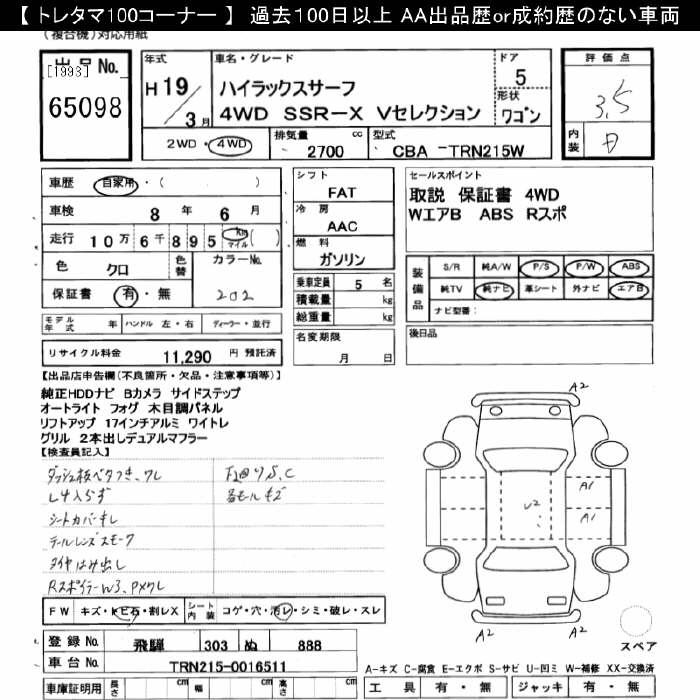 【 トレタマ100コーナー 】 過去100日以上 AA出品歴or成約歴のない車両
(複合機)対応用紙
出 品 No.
[1993]
65098
年式
H 19/3月
車名・グレード
ハイラックスサーフ
4WD SSR-X Vセレクション
ドア
5
形状
ワゴン
2WD・4WD
排気量 2700 cc
型式 CBA -TRN215W
評 価 点
3.5
内装
D
車歴 自家用・( )
車検 8 年 6 月
走行 10万 6千 895 km マイル ( )
色 クロ 色替
カラーNo.
202
保証書 有・無
モデル年式 年 ハンドル 左・右 ディーラー・並行
リサイクル料金 11,290 円 預託済
シフト
FAT
冷 房
AAC
燃 料
ガソリン
乗車定員 5 名
積載量 kg
総重量 kg
名変期限
月 日
セールスポイント
取説 保証書 4WD
WエアB ABS Rスポ
装備品
S/R 純A/W P/S P/W ABS
純TV 純ナビ 革シート 外ナビ エアB
ナビ型番:
後日品
【出品店申告欄(不良箇所・欠品・注意事項等)】
純正HDDナビ Bカメラ サイドステップ
オートライト フォグ 木目調パネル
リフトアップ 17インチアルミ ワイトレ
グリル 2本出しデュアルマフラー
【検査員記入】
シートカバーキレ
テールレンズスモーク
タイヤはみ出し
各モールキズ
A2
A1
U2
A1
A2
A2
スペア
FW キズ・トビ石・割レX
シート内装 コゲ・穴・汚レ・シミ・破レ・スレ
登録 No. 飛騨 303 ぬ 888
車台 No. TRN215-0016511
車庫証明用 長さ cm 幅 cm 高さ cm
A-キズ C-腐食 E-エクボ S-サビ U-凹ミ W-補修 XX-交換済
工 具 有・無 ジャッキ 有・無